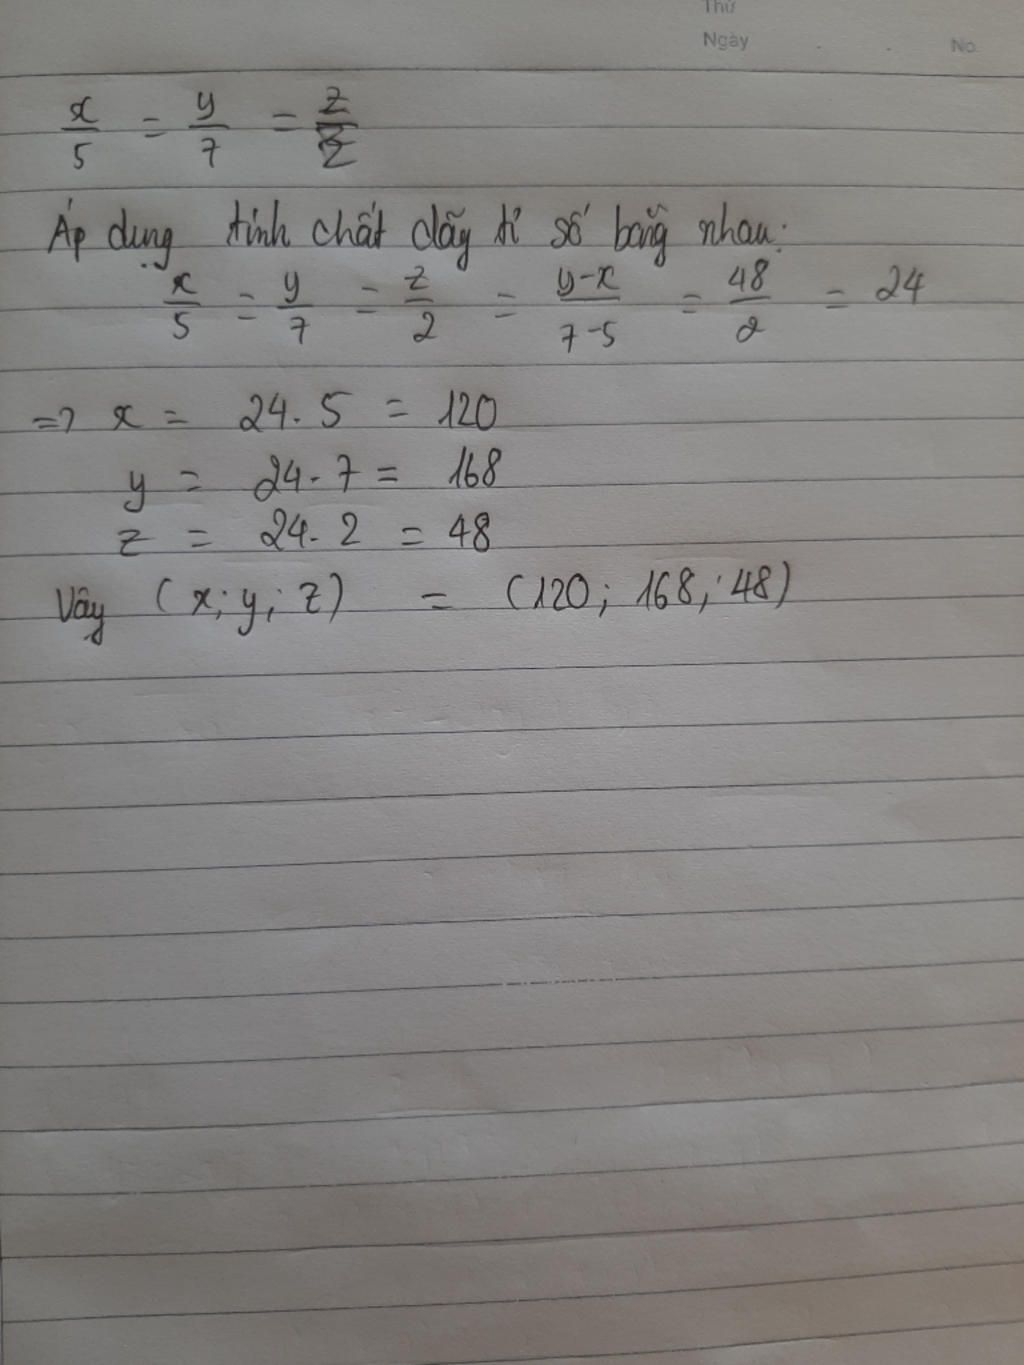 Thứ
Ngày No.
x/5 = y/7 = z/2
Áp dụng tính chất dãy tỉ số bằng nhau:
x/5 = y/7 = z/2 = y-x/7-5 = 48/2 = 24
=> x = 24. 5 = 120
y = 24. 7 = 168
z = 24. 2 = 48
Vây (x; y; z) = (120; 168; 48)